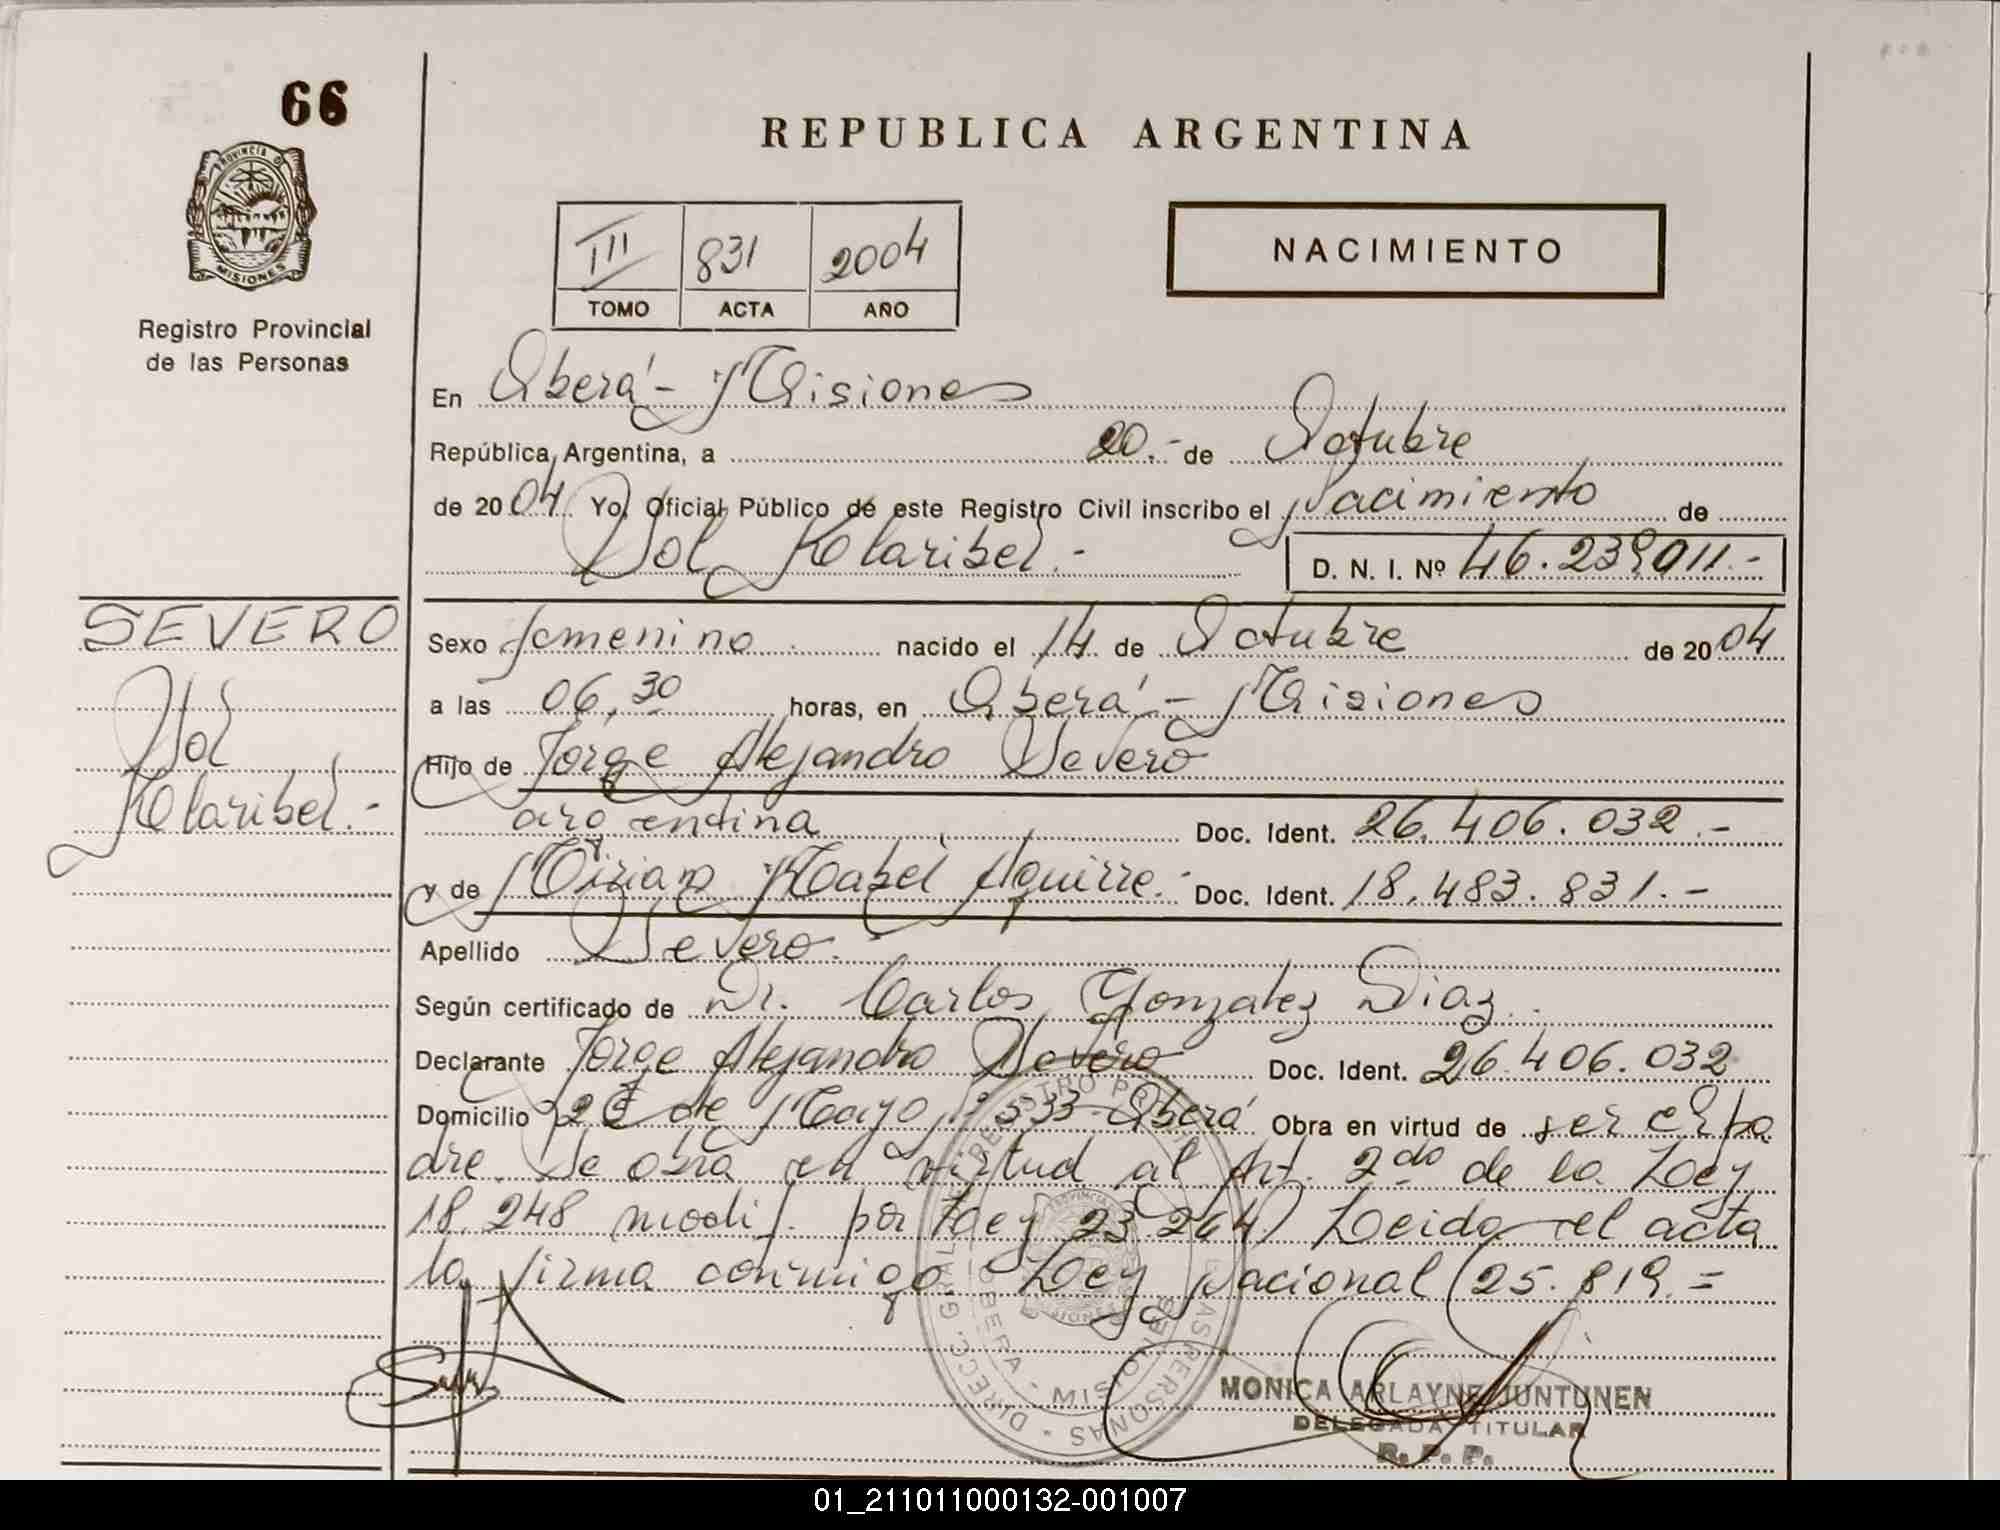 66
REPUBLICA ARGENTINA
PROVINCIA D
MISIONES
III 831 2004
TOMO ACTA AÑO
NACIMIENTO
Registro Provincial
de las Personas
En Oberá - Misiones
República Argentina, a 20.- de Octubre
de 2004 Yo, Oficial Público de este Registro Civil inscribo el Nacimiento de
Sol Maribel.- D. N. I. Nº 46.239011.-
SEVERO
Sol
Maribel.-
Sexo femenino nacido el 14 de Octubre de 2004
a las 06,30 horas, en Oberá - Misiones
Hijo de Jorge Alejandro Severo
argentina Doc. Ident. 26.406.032.-
y de Mirian Mabel Aguirre.- Doc. Ident. 18.483.831.-
Apellido Severo.-
Según certificado de Dr. Carlos Gonzalez Diaz.
Declarante Jorge Alejandro Severo Doc. Ident. 26.406.032
Domicilio de Mayo 333 - Oberá Obra en virtud de ser el pa
dre. Se obra en virtud al Art. 2do de la Ley
18.248 modif. por Ley 23.264) Leida el acta
la firma conmigo Ley Nacional (25.819.=
DIRECC. GRAL. REGISTRO PROVINCIAL LAS PERSONAS
OBERA - MISIONES
MONICA ARLAYNE JUNTUNEN
DELEGADA TITULAR
R. P. P.
01_211011000132-001007